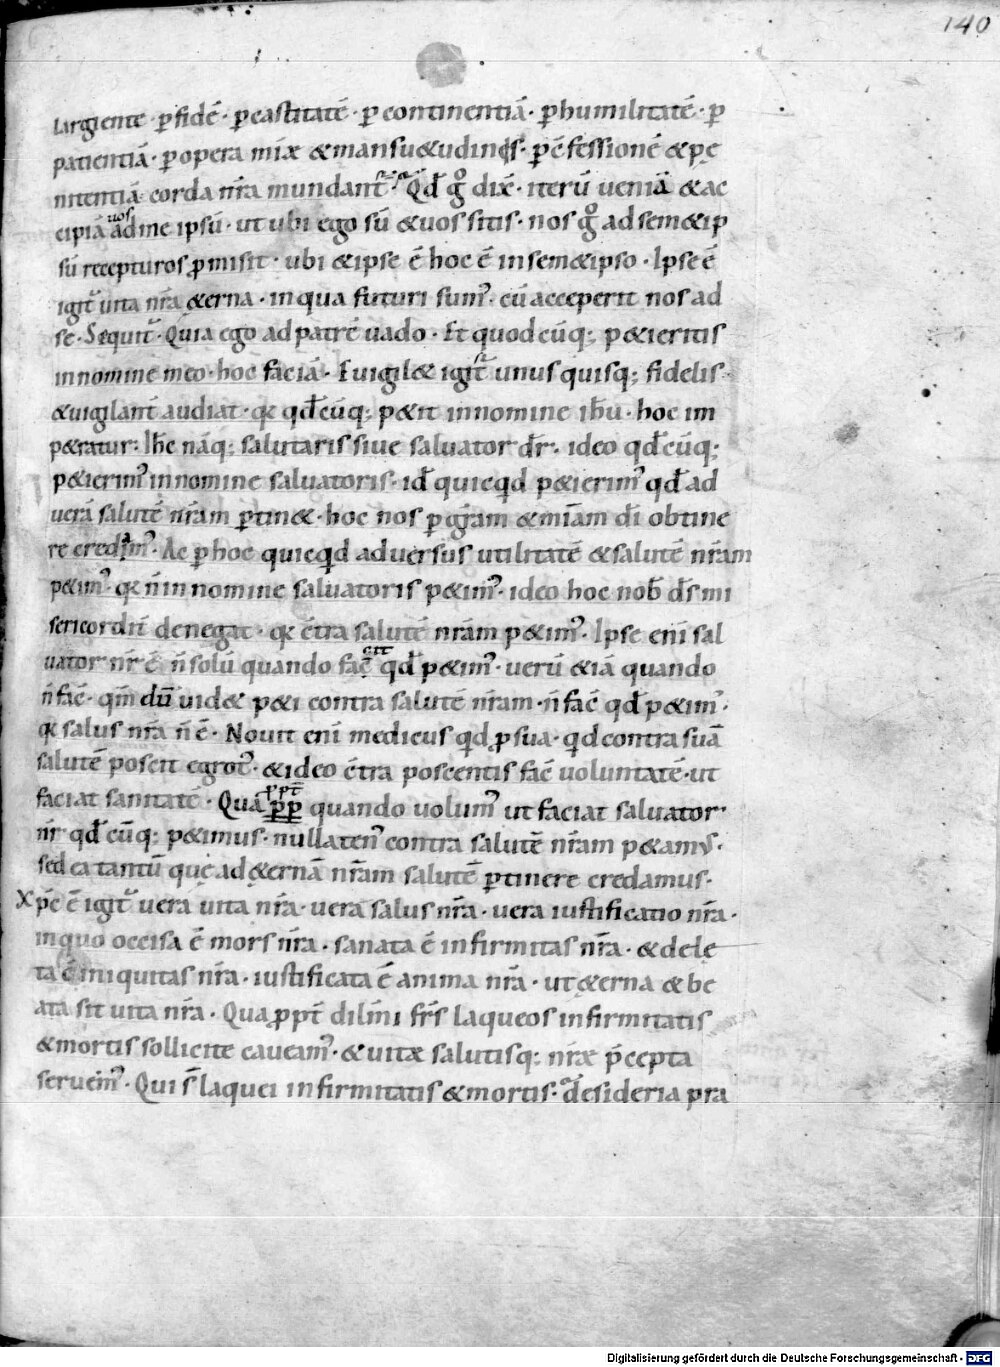 140
largiente · ꝑ fidē · ꝑ castitatē · ꝑ continentiā · ꝑ humilitatē · ꝑ
patientiā · ꝑ opera miæ & mansu&udinis · ꝑ ↄ̄fessionē & pę
nitentiā corda nr̄a mundant᷑ · Qd̄ gͦ dix̄ · iterū ueniā & ac
cipiā uos ad me ipsū · ut ubi ego sū & uos sitis · nos gͦ ad sem&ip
sū recepturos ꝓmisit · ubi & ipse ē hoc ē in sem&ipso · Ipse ē
igit᷑ uita nr̄a &erna · in qua futuri sumꝰ · cū acceperit nos ad
se · Sequit᷑ · Quia ego ad patrē uado · Et quodcūq; p&ieritis
in nomine meo · hoc faciā · Euigil& igit᷑ unus quisq; fidelis ·
& uigilant᷑ audiat · qꝛ qd̄cūq; p&it in nomine ihū · hoc im
p&ratur · Ihc nāq; salutaris siue saluator dr̄ · ideo qd̄cūq;
p&ierimꝰ in nomine saluatoris · id ̄ quicqd p&ierimꝰ qd̄ ad
uerā salutē nr̄am ꝑtin& · hoc nos ꝑ gr̄am & miām dī obtine
re credimꝰ · Ac ꝑ hoc quicqd aduersus utilitatē & salutē nr̄am
p&imꝰ · qꝛ n̄ in nomine saluatoris p&imꝰ · ideo hoc nob̄ ds̄ mi
sericordit᷑ denegat · qꝛ ↄ̄tra salutē nr̄am p&imꝰ · Ipse enī sal
uator nr̄ ē n̄ solū quando facit qd̄ p&imꝰ · uerū & iā quando
n̄ fac̄ · qm̄ dū uid& p&i contra salutē nr̄am · n̄ fac̄ qd̄ p&imꝰ ·
qꝛ salus nr̄a n̄ ē · Nouit enī medicus qd ꝓ sua · qd contra suā
salutē poscit egrotꝰ · & ideo ↄ̄tra poscentis fac̄ uoluntatē · ut
faciat sanitatē · Quaꝓpt̄ quando uolumꝰ ut faciat saluator
nr̄ qd̄cūq; p&imus · nullatenꝰ contra salutē nr̄am p&amꝰ ·
sed ea tantū quę ad &ernā nr̄am salutē ꝑtinere credamus ·
Xpc̄ ē igit᷑ uera uita nr̄a · uera salus nr̄a · uera iustificatio nr̄a ·
in quo occisa ē mors nr̄a · sanata ē infirmitas nr̄a · & dele
ta ē iniquitas nr̄a · iustificata ē anima nr̄a · ut &erna & be
ata sit uita nr̄a · Quaꝓpt̄ dilmi frs̄ laqueos infirmitatis
& mortis sollicite caueamꝰ · & uitæ salutisq; nr̄æ p̄cepta
seruemꝰ · Qui s̄ laquei infirmitatis & mortis · desideria pra
Digitalisierung gefördert durch die Deutsche Forschungsgemeinschaft - DFG